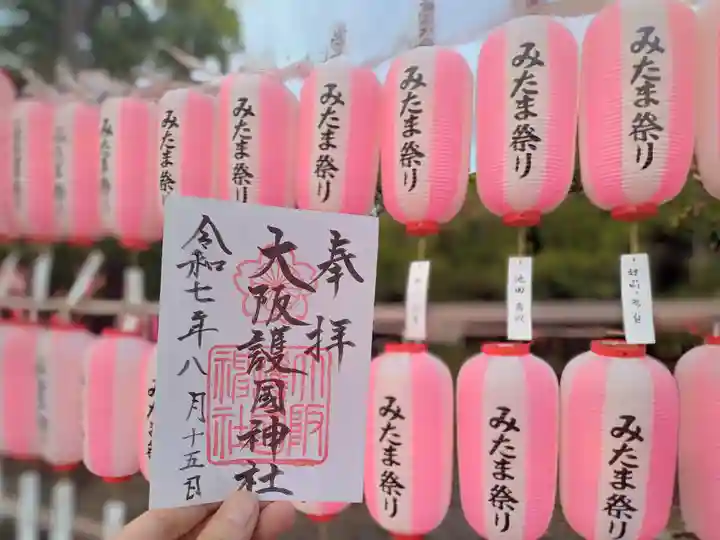 奉拝
大阪護国神社
令和七年八月十五日
みたま祭り
みたま祭り
みたま祭り
みたま祭り
みたま祭り
みたま祭り
みたま祭り
みたま祭り
みたま祭り
みたま祭り